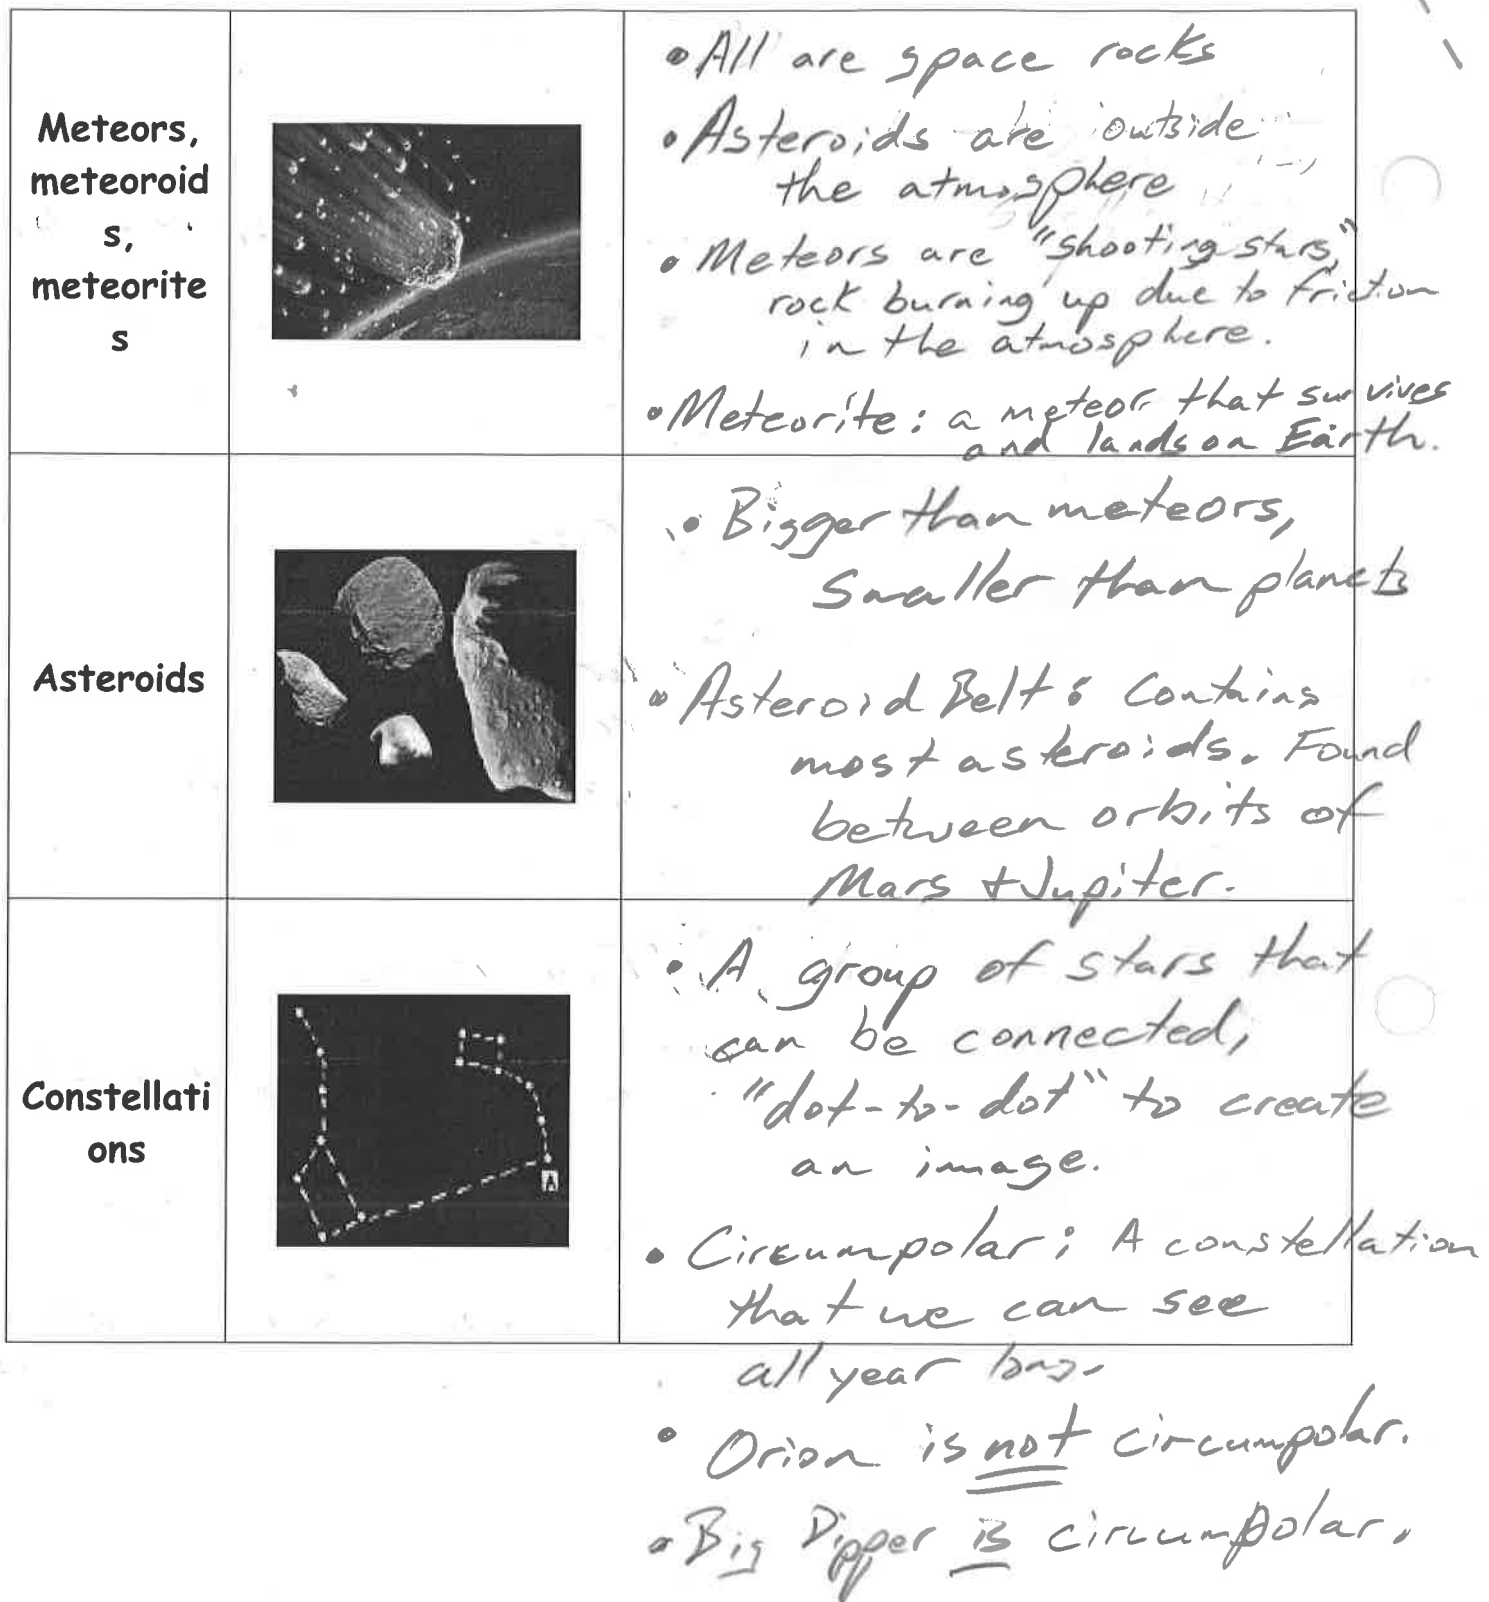 Meteors,
meteoroid
s,
meteorite
s
• All are space rocks
• Asteroids are outside
the atmosphere
• Meteors are "shooting stars,"
rock burning up due to friction
in the atmosphere.
• Meteorite: a meteor that survives
and lands on Earth.
Asteroids
• Bigger than meteors,
smaller than planets
• Asteroid Belt: Contains
most asteroids. Found
between orbits of
Mars + Jupiter.
Constellati
ons
A
• A group of stars that
can be connected,
"dot-to-dot" to create
an image.
• Circumpolar: A constellation
that we can see
all year long.
• Orion is not circumpolar.
• Big Dipper is circumpolar.